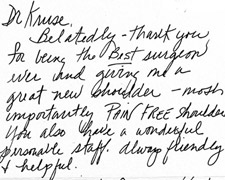 Dr. Kruse,
Belatedly - thank you
for being the Best surgeon
ever and giving me a
great new shoulder - most
importantly PAIN FREE shoulder
You also have a wonderful
personable staff. always friendly
& helpful.